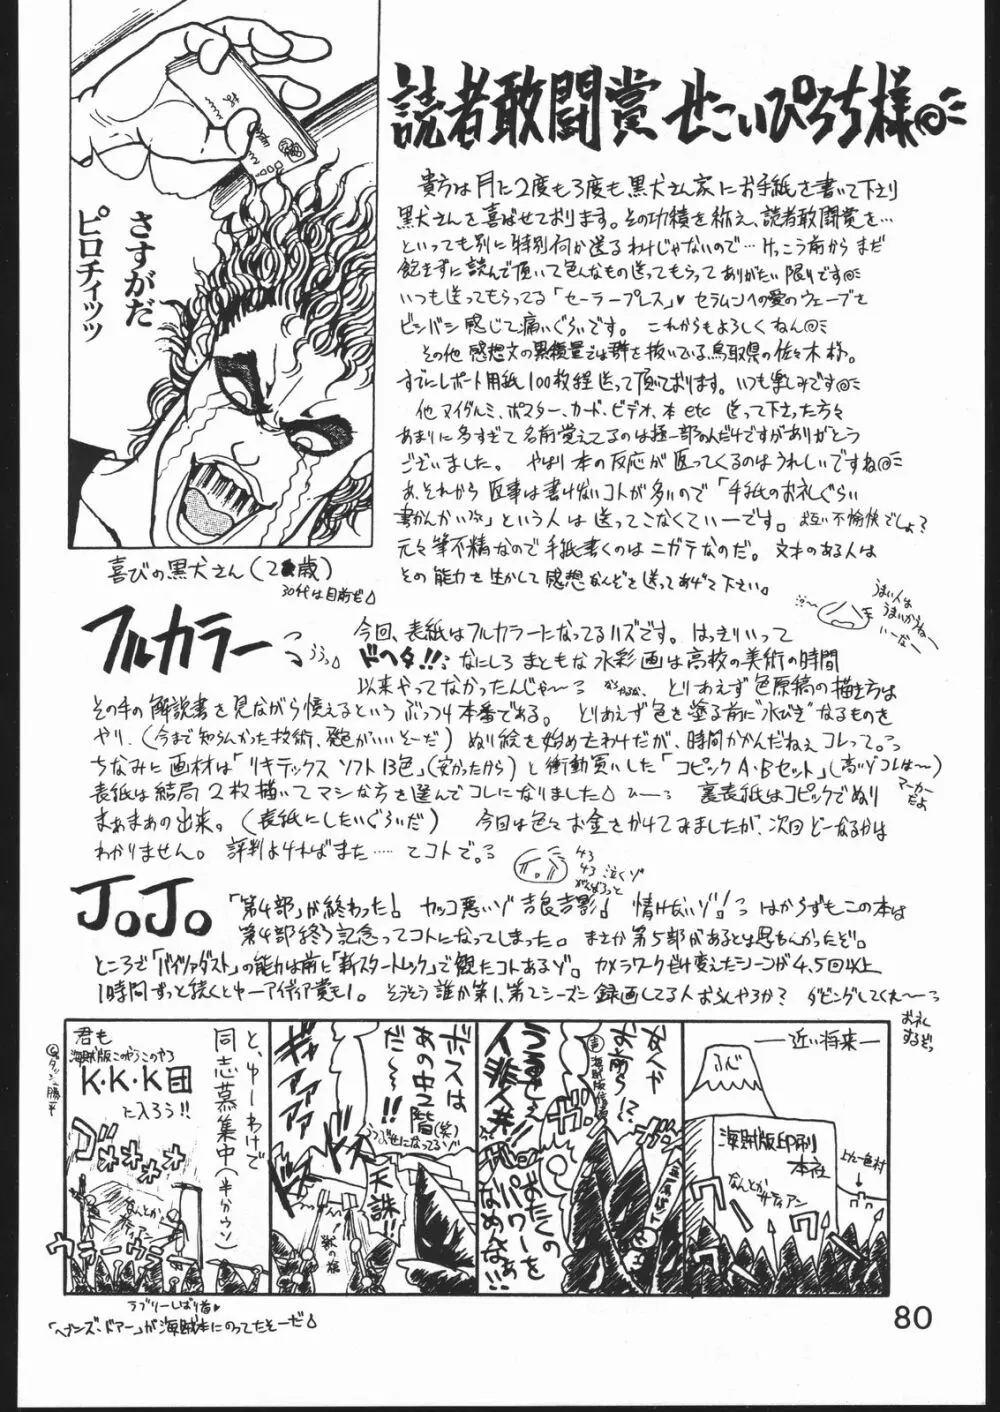 読者敢闘賞 せこいぴろち様
さすがだ
ピロチィッッ
喜びの黒犬さん(2 歳)
30代は目前だ
貴方は月に2度も3度も黒犬さん家にお手紙を書いて下さり
黒犬さんを喜ばせております。その功積を称え、読者敢闘賞を…
といっても別に特別何か送るわけじゃないので…けっこう前からまだ
飽きずに読んで頂いて色んなもの送ってもらってありがたい限りです
いつも送ってもらってる「セーラープレス」♥セラムンへの愛のウェーブを
ビンバン感じて痛いぐらいです。これからもよろしくねん
その他 感想文の 量では群を抜いている鳥取県の佐々木様。
すでにレポート用紙100枚程送って頂いております。いつも楽しみです
他 ヌイグルミ、ポスター、カード、ビデオ、本etc 送って下さった方々
あまりに多すぎて名前覚えてるのは極一部なんだけですがありがとう
ございました。やはり本の反応が返ってくるのはうれしいですね
あ、それから返事は書けないコトが多いので「手紙のお礼ぐらい
書かんかい」という人は送ってこなくていーです。お互い不愉快でしょ?
元々筆不精なので手紙書くのはニガテなのだ。文才のある人は
その能力を生かして感想なんぞを送ってあげて下さい。
うまい人は
うまいからねー
いーなー
フルカラー
今回、表紙はフルカラーになってるハズです。はっきりいって
ドヘタ!!なにしろまともな水彩画は高校の美術の時間
以来やってなかったんじゃ〜 とりあえず色原稿の描き方は
その手の解説書を見ながら憶えるというぶっつけ本番である。とりあえず色を塗る前に"水びき"なるものを
やり、(今まで知らんかった技術、発色がいいそーだ)ぬり絵を始めたわけだが、時間かかんだねぇコレって。
ちなみに画材は「リキテックス ソフト13色」(安かったから)と衝動買いした「コピックA・Bセット」(高いゾコレは〜)
マーカーだよ
表紙は結局2枚描いてマシな方を選んでコレになりました ひー 裏表紙はコピックでぬり
まぁまぁの出来。(表紙にしたいぐらいだ) 今回は色々お金をかけてみましたが、次回どーなるかは
わかりません。評判よければまた……てコトで。
JoJo
「第4部」が終わった! カッコ悪いゾ吉良吉影! 情けないゾ! はからずもこの本は
第4部終了記念ってコトになってしまった。まさか第5部があるとは思もんかったぞ。
ところで「バイツァダスト」の能力は前に「新スタートレック」で観たコトあるゾ。カメラワークだけ変えたシーンが4、5回以上
1時間ずっと続くと中々アイディア賞も1。そうそう誰か第1、第2シーズン録画してる人おらんやろか? ダビングしてくれ〜
お礼するぞっ
―近い将来―
ふじ
海賊版印刷
本社
なんとか
ガーディアン
友人や
お前ら!?
うるせぇ
人非人が
おたくの
パワーを
なめんなぁ!!
ボスは
あの中2階(笑)
だ〜!!
天誅!!
ギィァァァァ
と、ゆーわけで
同志慕集中(半分ウソ)
君も
海賊版このやろこのやろ
K・K・K団
に入ろう!!
ゴオォォォ
ラブリーしばり首♥
「ヘブンズ・ドアー」が海賊本にのってたそーだ
80